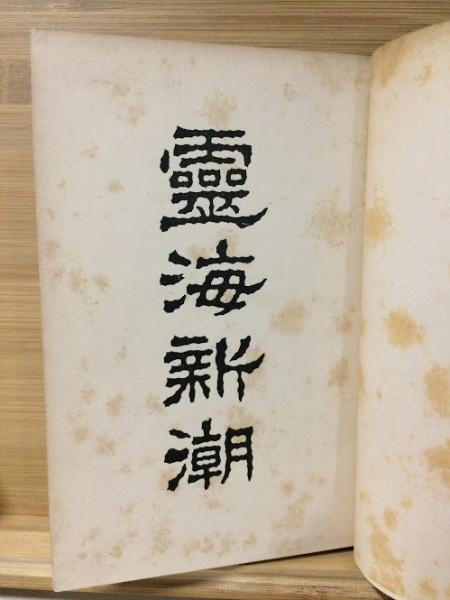 靈海新潮